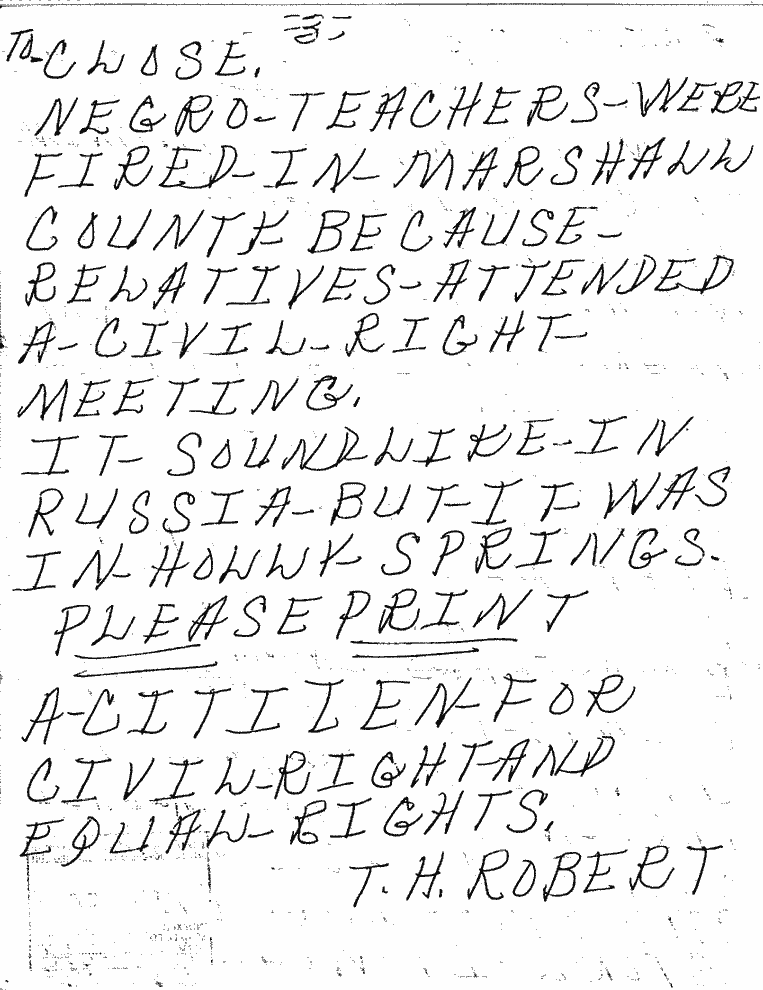 -3-
TO-CLOSE.
NEGRO-TEACHERS-WERE
FIRED-IN-MARSHALL
COUNTY BECAUSE-
RELATIVES-ATTENDED
A-CIVIL-RIGHT-
MEETING.
IT- SOUND LIKE-IN
RUSSIA-BUT-IT-WAS
IN-HOLLY-SPRINGS.
PLEASE PRINT
A-CITIZEN-FOR
CIVIL-RIGHT-AND
EQUAL-RIGHTS.
T. H. ROBERT